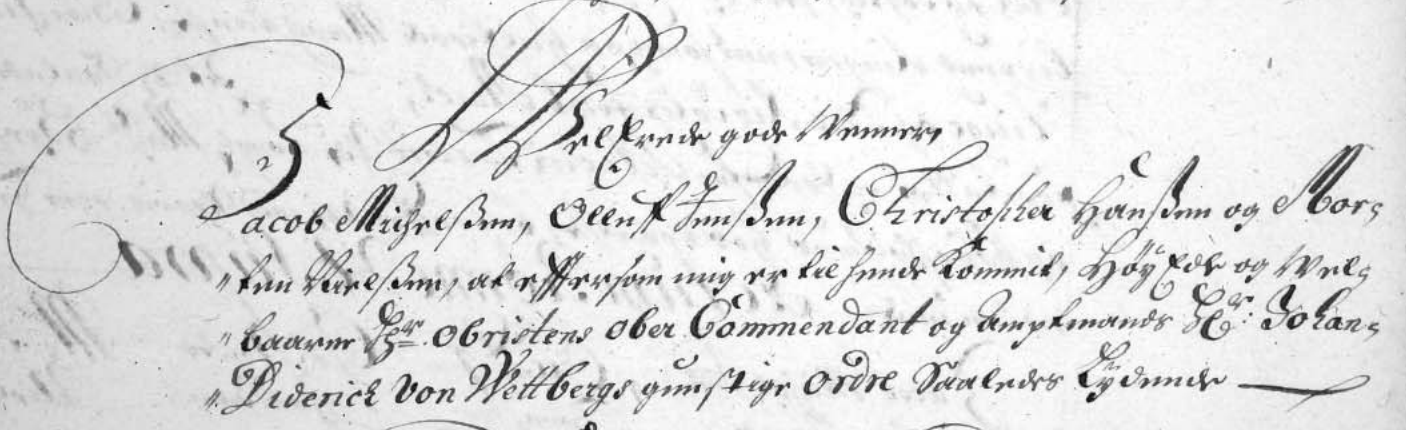 WelErede gode Wenner,
Jacob Michelßen, Olluf Jenßen, Christopher Hanßen og Mor-
ten Nielßen, at effersom mig er til hende Kommit, Høy Ede og Wel-
baarne Hr. Obristens Ober Commendant og Amptmands Hr: Johan-
Diderick Von Wettbergs gunstige Ordre Saaledes Lydende